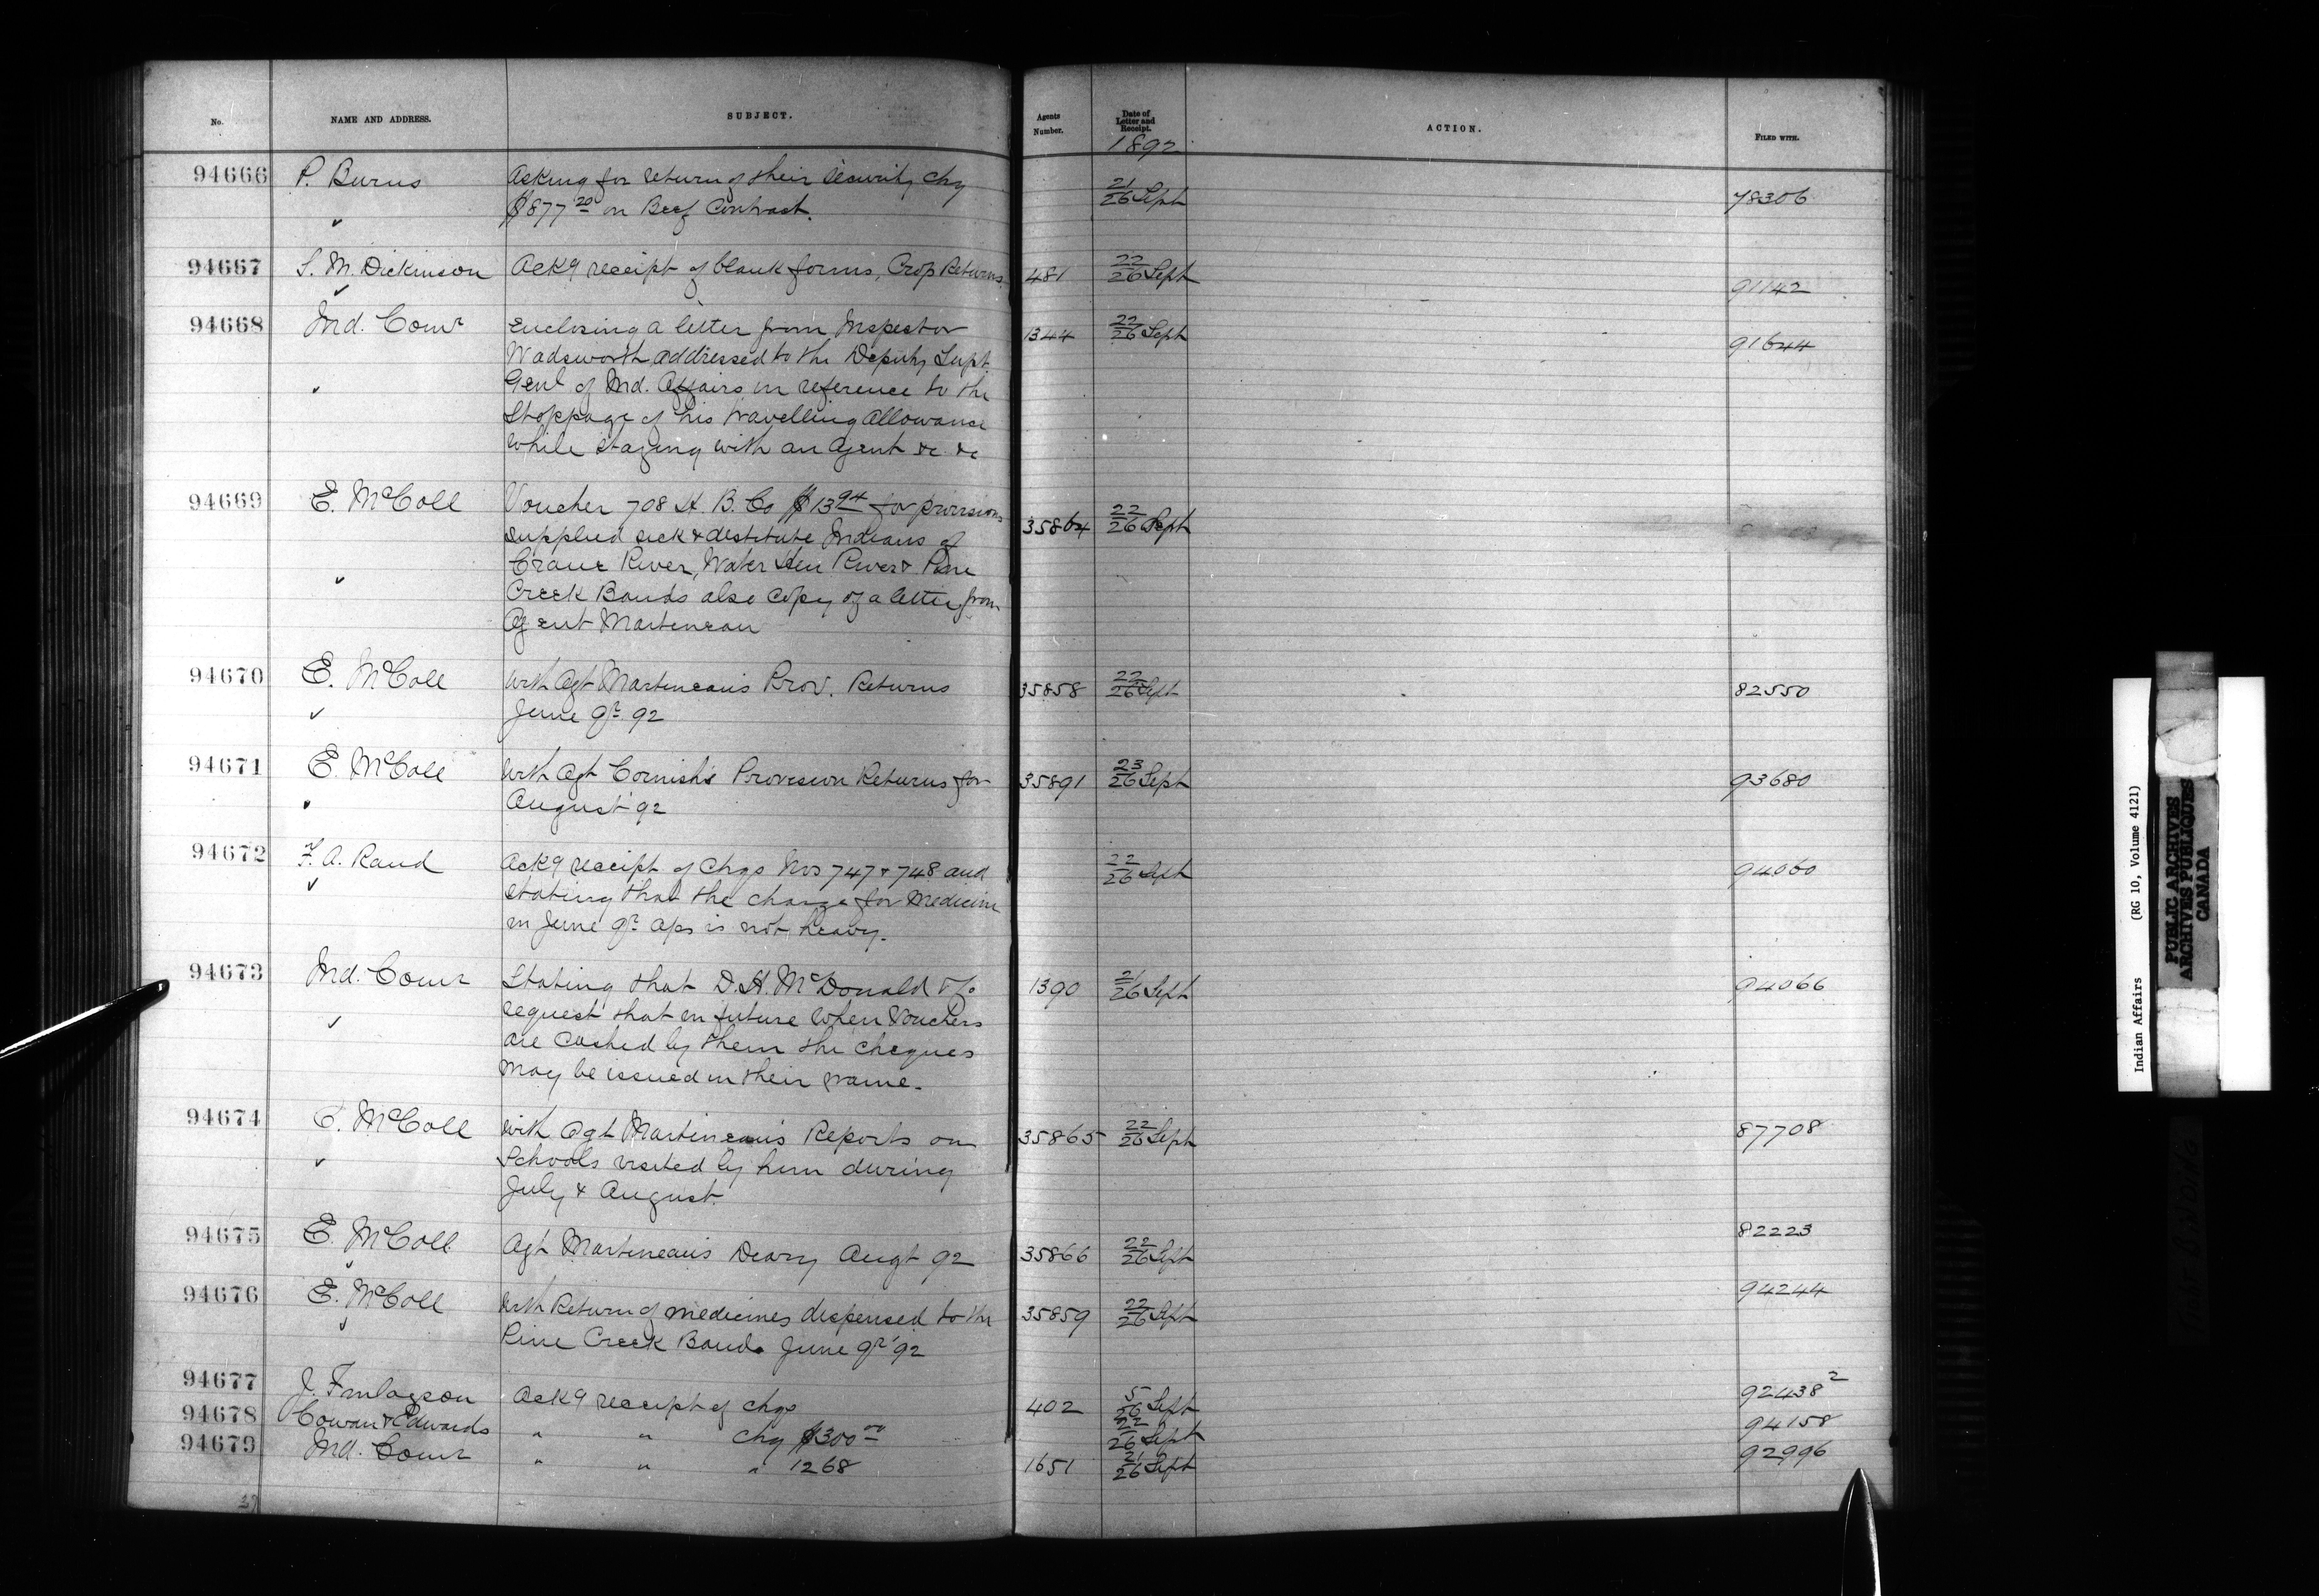 No. NAME AND ADDRESS. SUBJECT. Agents Number. Date of Letter and Receipt. ACTION. FILED WITH.
1892
94666 P. Burns Asking for return of their security chq 21/26 Sept 78306
$877.20 on Beef Contract.
94667 S. M. Dickinson Ackg receipt of blank forms, Crop Returns 481 22/26 Sept 91142
94668 Ind. Comr Enclosing a letter from Inspector 1344 22/26 Sept 91644
Wadsworth addressed to the Deputy Supt
Genl of Ind. Affairs in reference to the
Stoppage of his travelling allowance
while staying with an agent &c &c
94669 E. McColl Voucher 708 H. B. Co $13.94 for provisions 35864 22/26 Sept
supplied sick & destitute Indians of
Crane River, Water Hen River & Pine
Creek Bands also copy of a letter from
Agent Martineau
94670 E. McColl With Agt Martineau's Prov. Returns 35858 22/26 Sept 82550
June qr 92
94671 E. McColl With Agt Cornish's Provision Returns for 35891 23/26 Sept 93680
August 92
94672 F. A. Raud Ackg receipt of chqs Nos 747 & 748 and 22/26 Sept 94060
stating that the charge for Medicine
in June qr a/cs is not heavy.
94673 Ind. Comr Stating that D. H. McDonald & Co 1390 21/26 Sept 94066
request that in future when Vouchers
are cashed by them the cheques
may be issued in their name.
94674 E. McColl With Agt Martineau's Reports on 35865 22/26 Sept 87708
Schools visited by him during
July & August.
94675 E. McColl Agt Martineau's Diary Augt 92 35866 22/26 Sept 82223
94676 E. McColl With Return of medicines dispensed to the 35859 22/26 Sept 94244
Pine Creek Band June qr '92
94677 J. Finlayson Ackg receipt of chqs 402 5/26 Sept 92438 2
94678 Cowan & Edwards " " chq $300.00 22/26 Sept 94158
94679 Ind. Comr " " " 1268 1651 21/26 Sept 92996
Indian Affairs (RG 10, Volume 4121)
PUBLIC ARCHIVES
ARCHIVES PUBLIQUES
CANADA